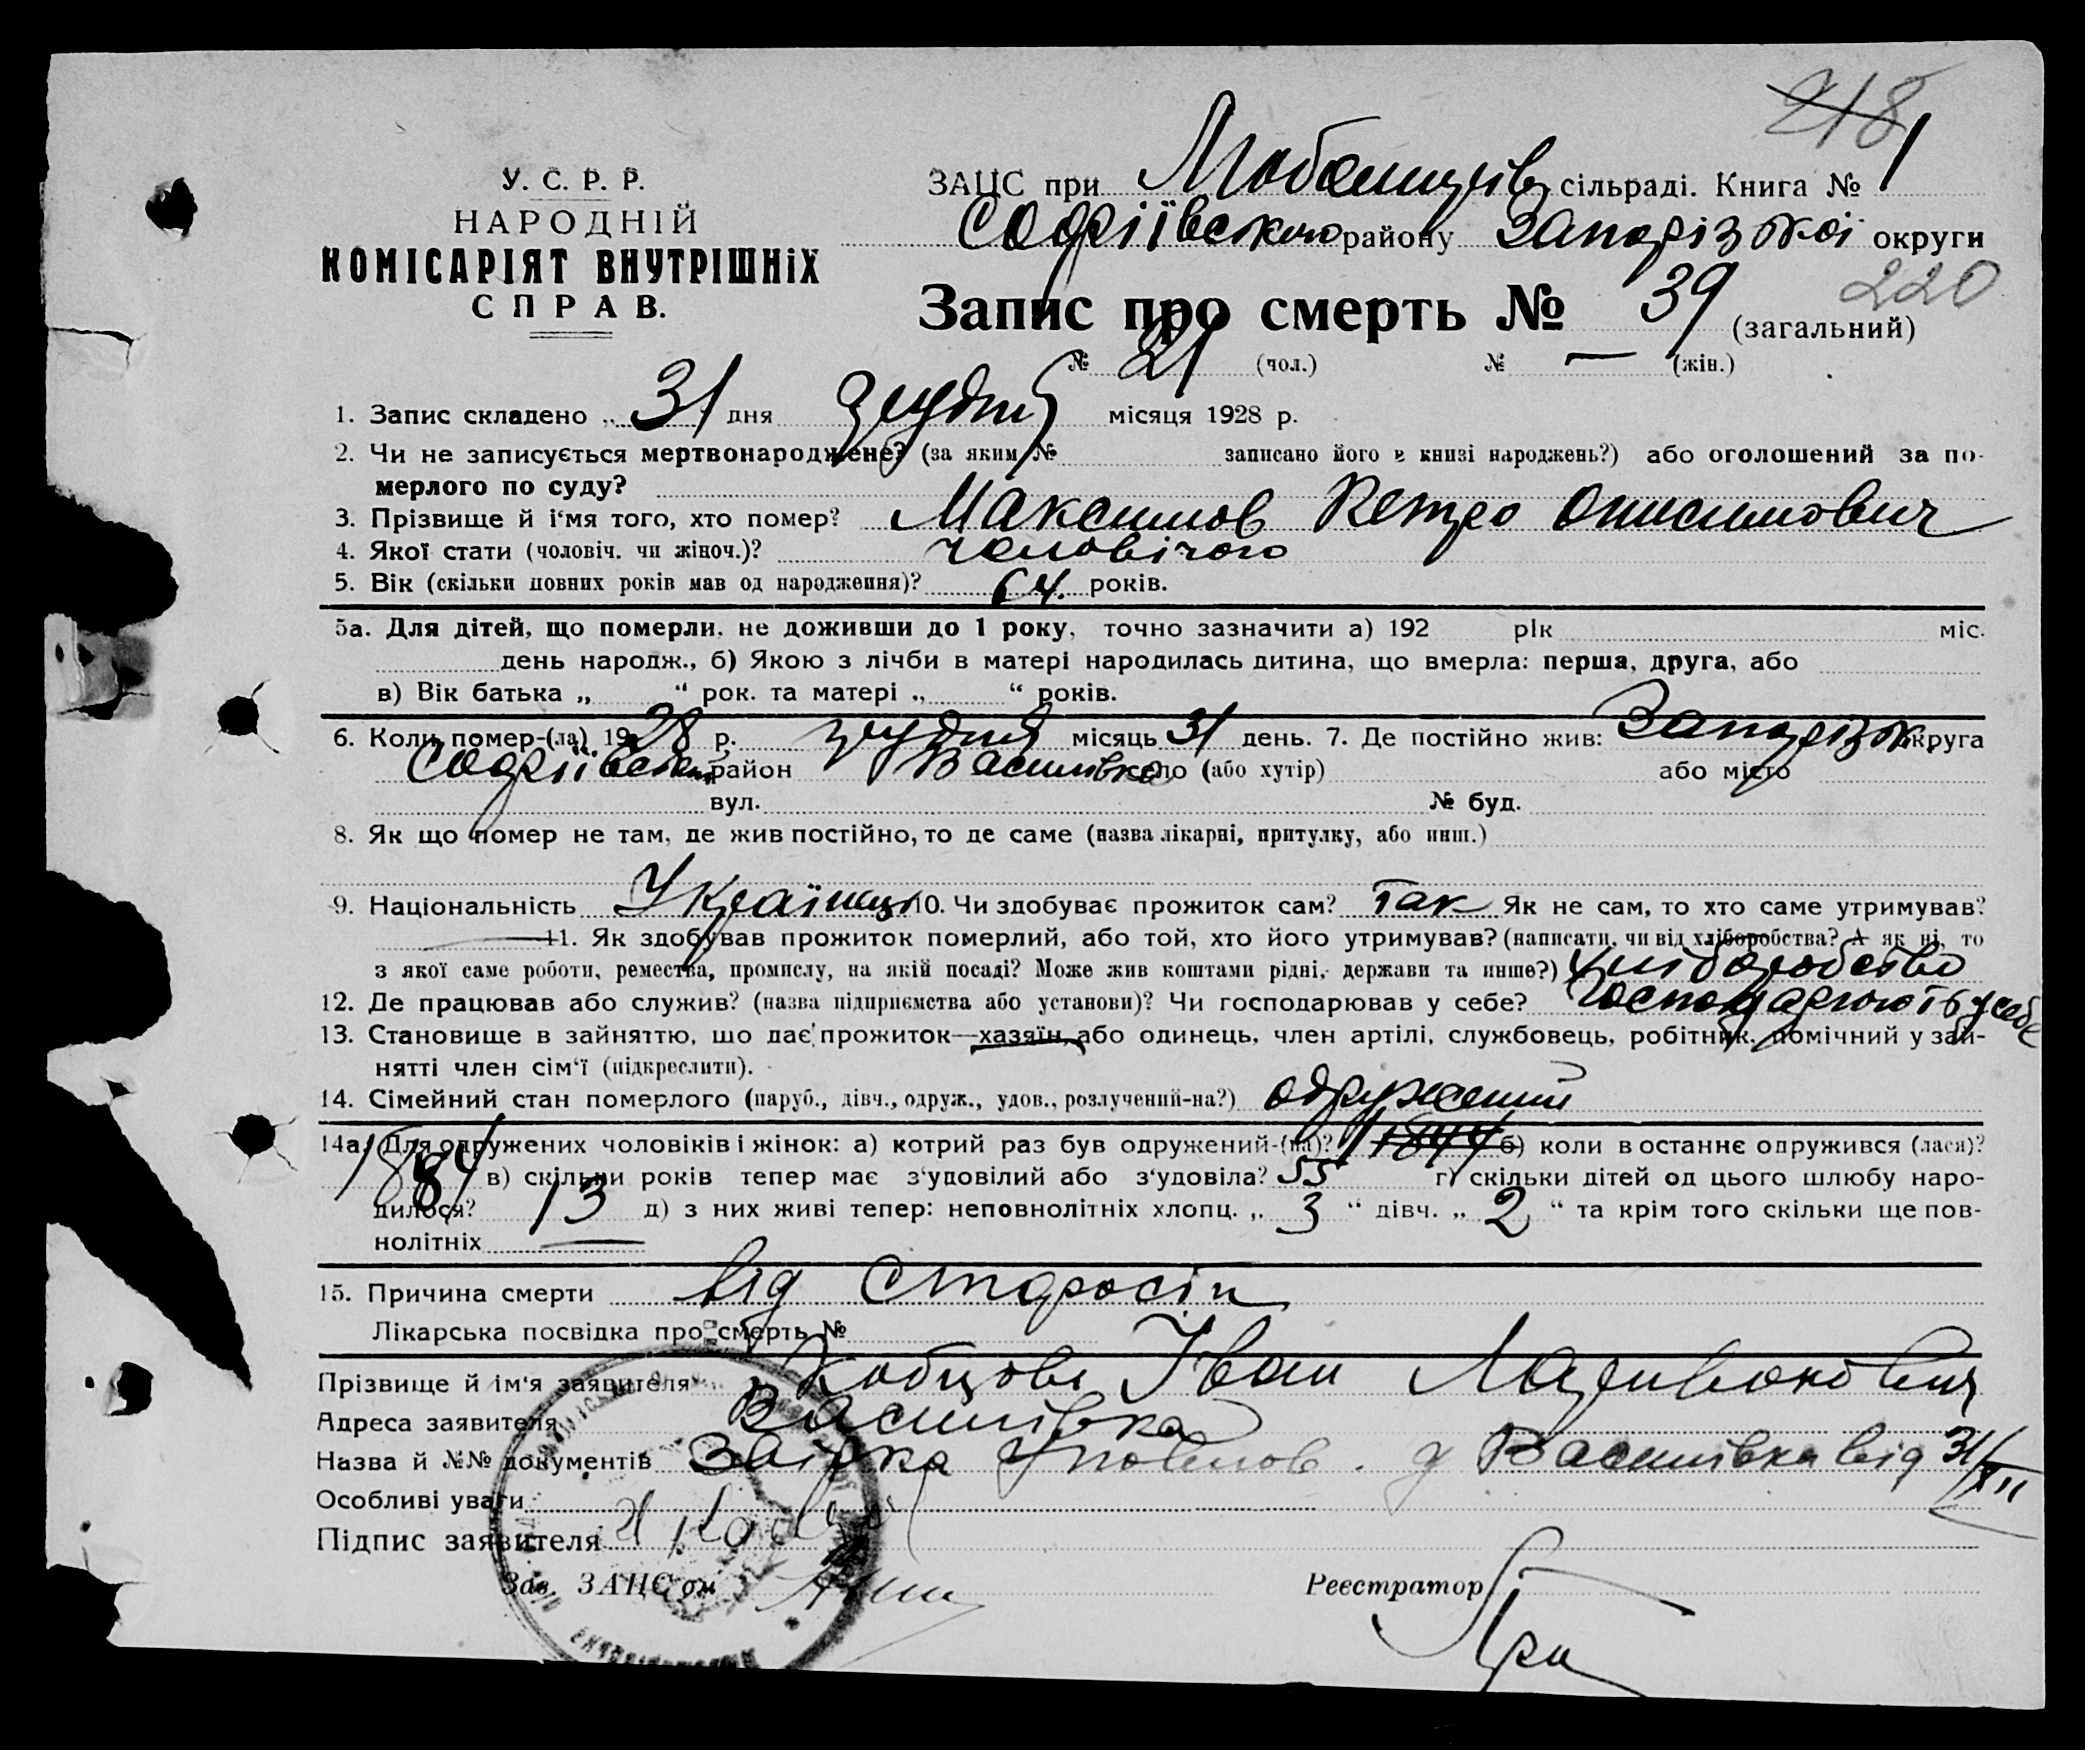 218
У. С. Р. Р.
НАРОДНІЙ
КОМІСАРІЯТ ВНУТРІШНіХ
СПРАВ.
ЗАЦС при сільраді. Книга № 1
Софіївського району Запорізької округи
220
Запис про смерть № 39 (загальний)
№ 21 (чол.) № — (жін.)
1. Запис складено „ 31 дня грудня місяця 1928 р.
2. Чи не записується мертвонароджене? (за яким № записано його в книзі народжень?) або оголошений за по-
мерлого по суду?
3. Прізвище й і'мя того, хто помер? Максимов Петро Онисимович
4. Якої стати (чоловіч. чи жіноч.)? чоловічого
5. Вік (скільки повних років мав од народження)? 64. років.
5а. Для дітей, що померли, не доживши до 1 року, точно зазначити а) 192 рік міс.
день народж., б) Якою з лічби в матері народилась дитина, що вмерла: перша, друга, або
в) Вік батька „ “ рок. та матері „ “ років.
6. Коли помер-(ла) 1928 р. грудня місяць 31 день. 7. Де постійно жив: Запорізьк. округа
Софіївськ район Василівка село (або хутір) або місто
вул. № буд.
8. Як що помер не там, де жив постійно, то де саме (назва лікарні, притулку, або инш.)
9. Національність Українец 10. Чи здобуває прожиток сам? Так Як не сам, то хто саме утримував?
— 11. Як здобував прожиток померлий, або той, хто його утримував? (написати, чи від хліборобства? А як ні, то
з якої саме роботи, ремества, промислу, на якій посаді? Може жив коштами рідні, держави та инше?) Хліборобство
12. Де працював або служив? (назва підприємства або установи)? Чи господарював у себе? у себе
13. Становище в зайняттю, що дає прожиток—хазяїн, або одинець, член артілі, службовець, робітник, помічний у зай-
нятті член сім'ї (підкреслити).
14. Сімейний стан померлого (паруб., дівч., одруж., удов., розлучений-на?) одружений
14а. Для одружених чоловіків і жінок: а) котрий раз був одружений-(на)? 1 б) коли в останнє одружився (лася)?
1884 в) скільки років тепер має з'удовілий або з'удовіла? 55 г) скільки дітей од цього шлюбу наро-
дилося? 13 д) з них живі тепер: неповнолітніх хлопц. „ 3 “ дівч. „ 2 “ та крім того скільки ще пов-
нолітніх —
15. Причина смерти від старости
Лікарська посвідка про смерть №
Прізвище й ім'я заявителя Іван
Адреса заявителя Василівка
Назва й №№ документів с Василівка від 31/XII
Особливі уваги
Підпис заявителя
Зав. ЗАЦС'ом Реєстратор